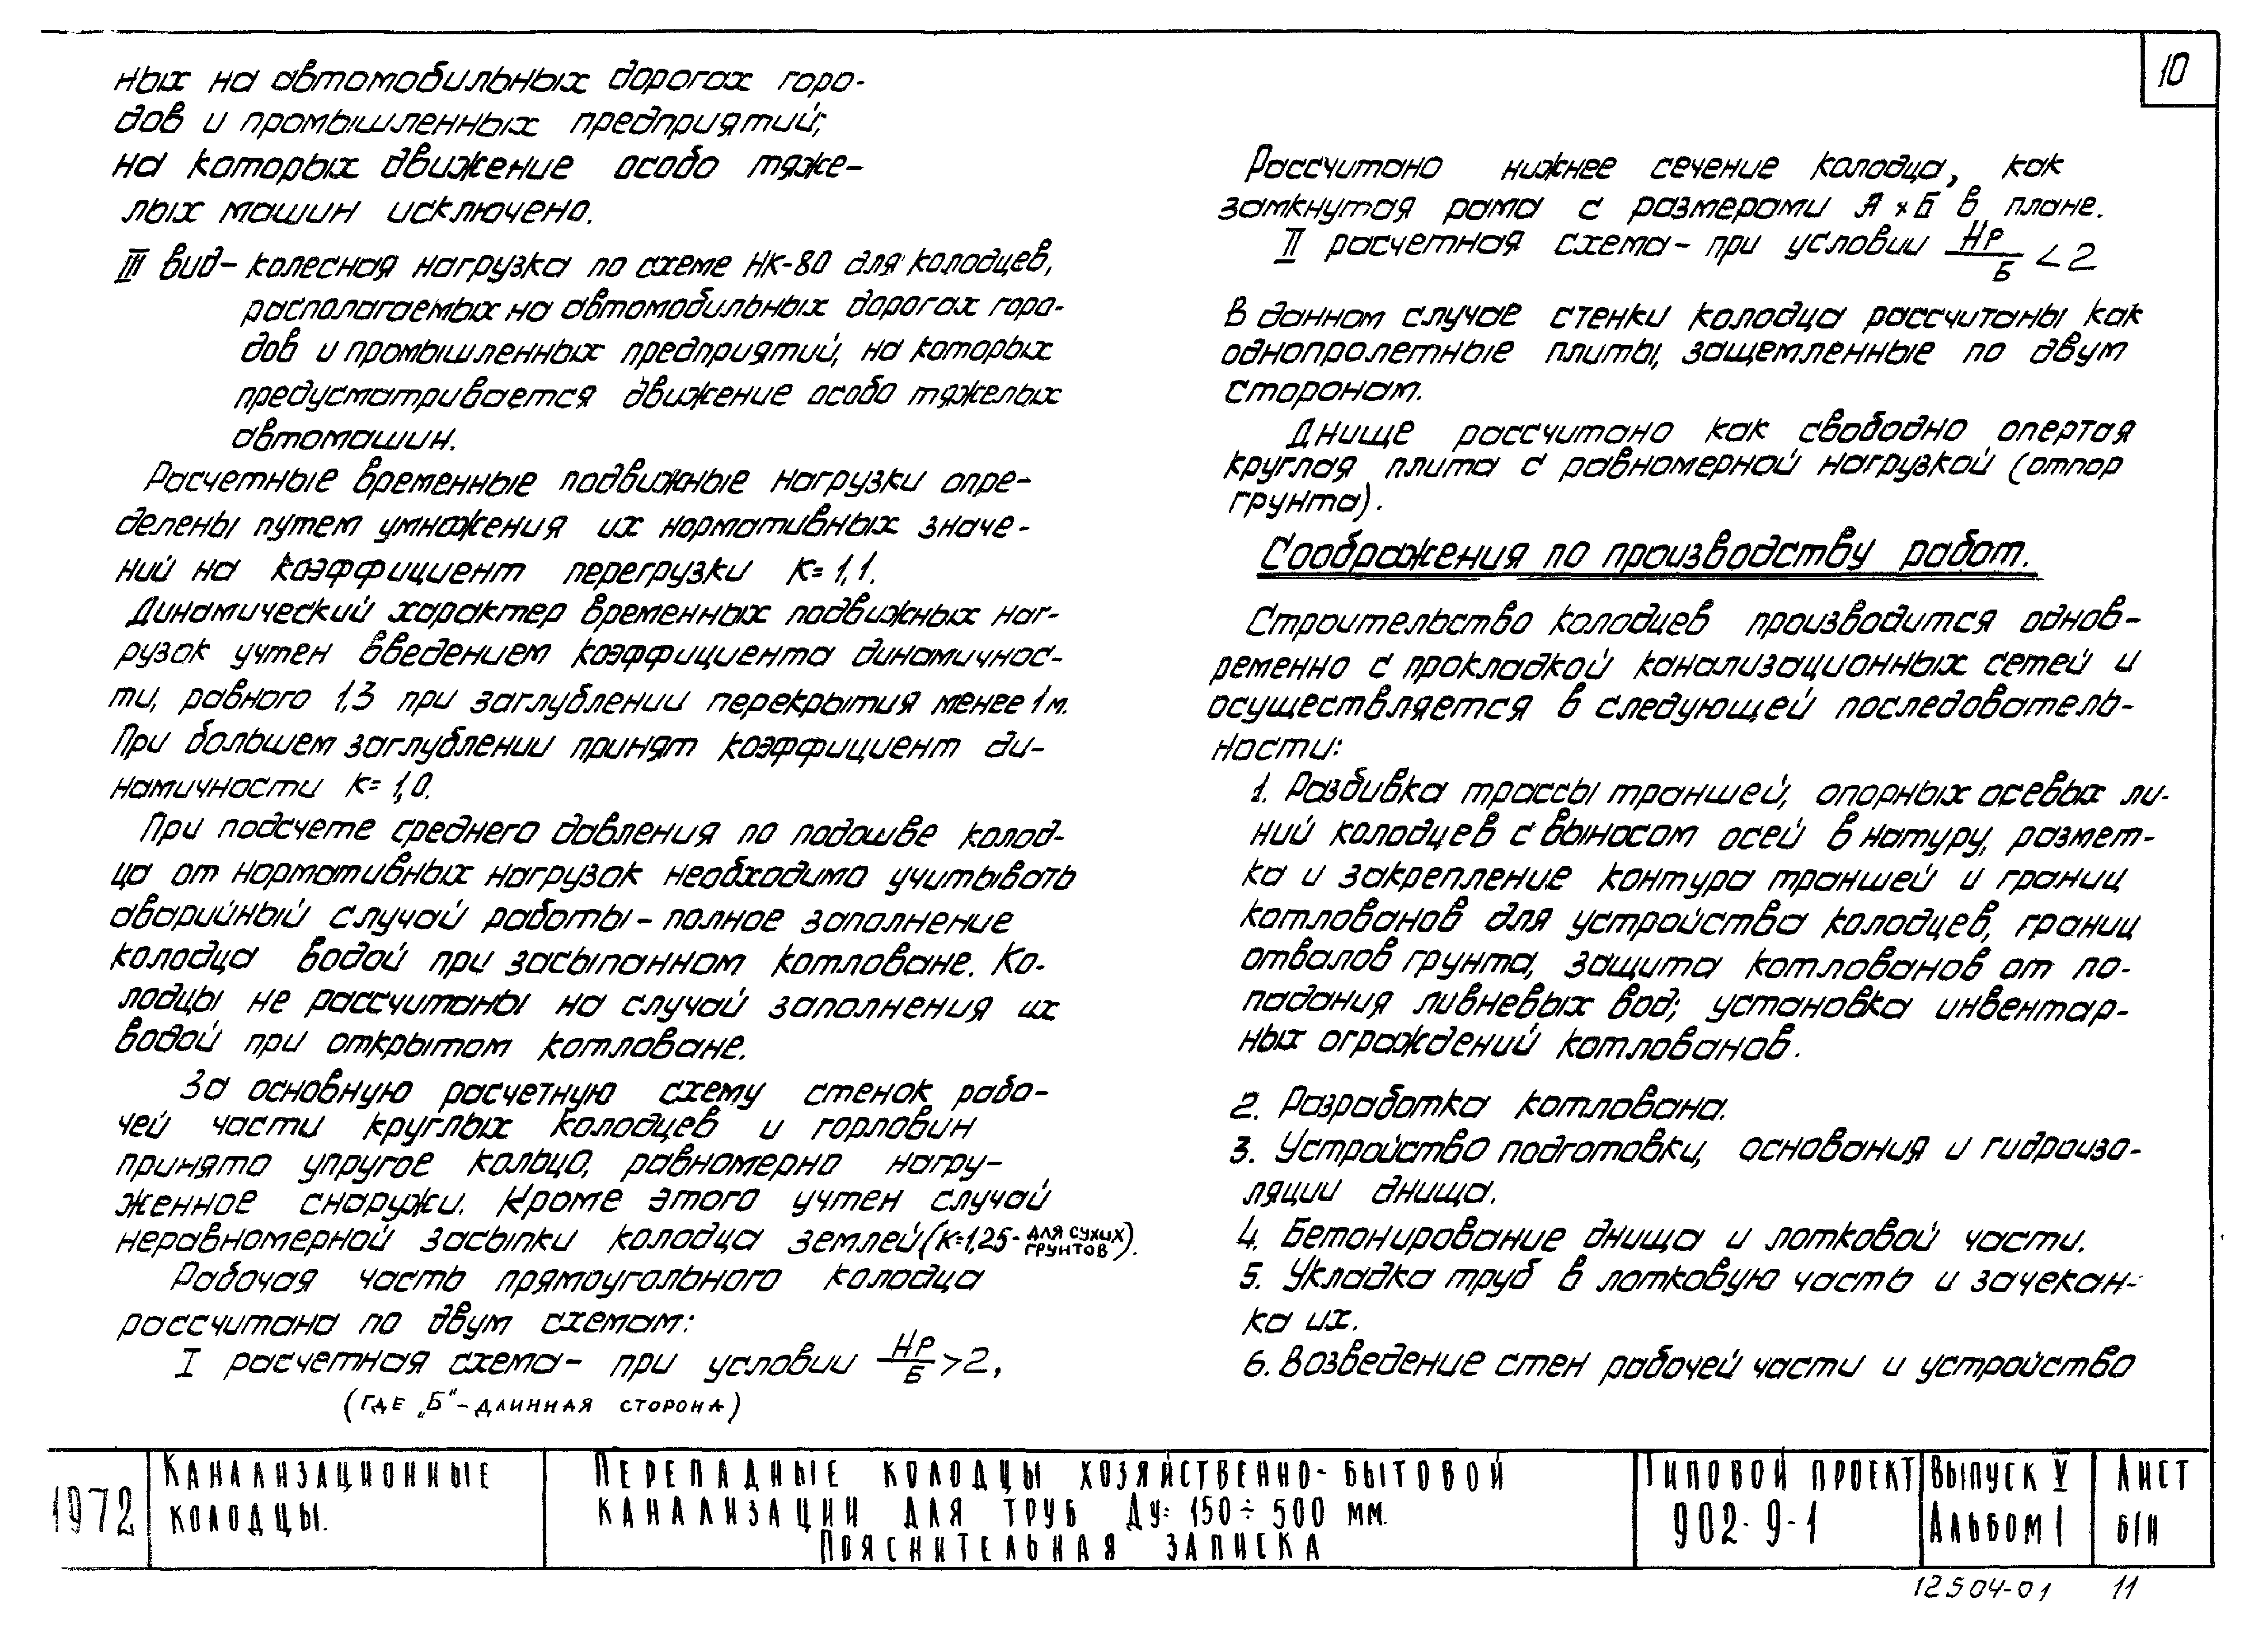 ных на автомобильных дорогах горо-
дов и промышленных предприятий;
на которых движение особо тяже-
лых машин исключено.
III вид - колесная нагрузка по схеме НК-80 для колодцев,
располагаемых на автомобильных дорогах горо-
дов и промышленных предприятий, на которых
предусматривается движение особо тяжелых
автомашин.
Расчетные временные подвижные нагрузки опре-
делены путем умножения их нормативных значе-
ний на коэффициент перегрузки К=1,1.
Динамический характер временных подвижных наг-
рузок учтен введением коэффициента динамичнос-
ти, равного 1,3 при заглублении перекрытия менее 1 м.
При большем заглублении принят коэффициент ди-
намичности К=1,0.
При подсчете среднего давления по подошве колод-
ца от нормативных нагрузок необходимо учитывать
аварийный случай работы - полное заполнение
колодца водой при засыпанном котловане. Ко-
лодцы не рассчитаны на случай заполнения их
водой при открытом котловане.
За основную расчетную схему стенок рабо-
чей части круглых колодцев и горловин
принято упругое кольцо, равномерно нагру-
женное снаружи. Кроме этого учтен случай
неравномерной засыпки колодца землей (К=1,25 - для сухих грунтов).
Рабочая часть прямоугольного колодца
рассчитана по двум схемам:
I расчетная схема - при условии Нр/Б >2,
(где „Б" - длинная сторона)
10
Рассчитано нижнее сечение колодца, как
замкнутая рама с размерами А×Б в плане.
II расчетная схема - при условии Нр/Б <2
В данном случае стенки колодца рассчитаны как
однопролетные плиты, защемленные по двум
сторонам.
Днище рассчитано как свободно опертая
круглая плита с равномерной нагрузкой (отпор
грунта).
Соображения по производству работ.
Строительство колодцев производится однов-
ременно с прокладкой канализационных сетей и
осуществляется в следующей последователь-
ности:
1. Разбивка трассы траншей, опорных осевых ли-
ний колодцев с выносом осей в натуру, размет-
ка и закрепление контура траншей и границ
котлованов для устройства колодцев, границ
отвалов грунта, защита котлованов от по-
падания ливневых вод; установка инвентар-
ных ограждений котлованов.
2. Разработка котлована.
3. Устройство подготовки, основания и гидроизо-
ляции днища.
4. Бетонирование днища и лотковой части.
5. Укладка труб в лотковую часть и зачекан-
ка их.
6. Возведение стен рабочей части и устройство
1972
Канализационные
колодцы.
Перепадные колодцы хозяйственно-бытовой
канализации для труб Ду=150÷500 мм.
Пояснительная записка
Типовой проект
902-9-1
Выпуск V
Альбом I
Лист
б/н
12504-01 11